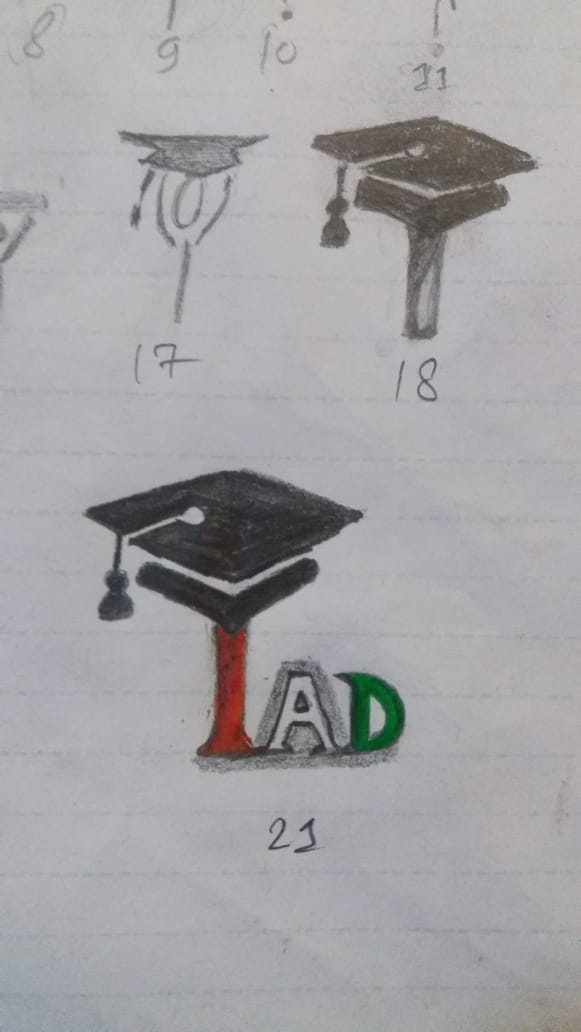 8 9 10 11
17 18
IAD
21